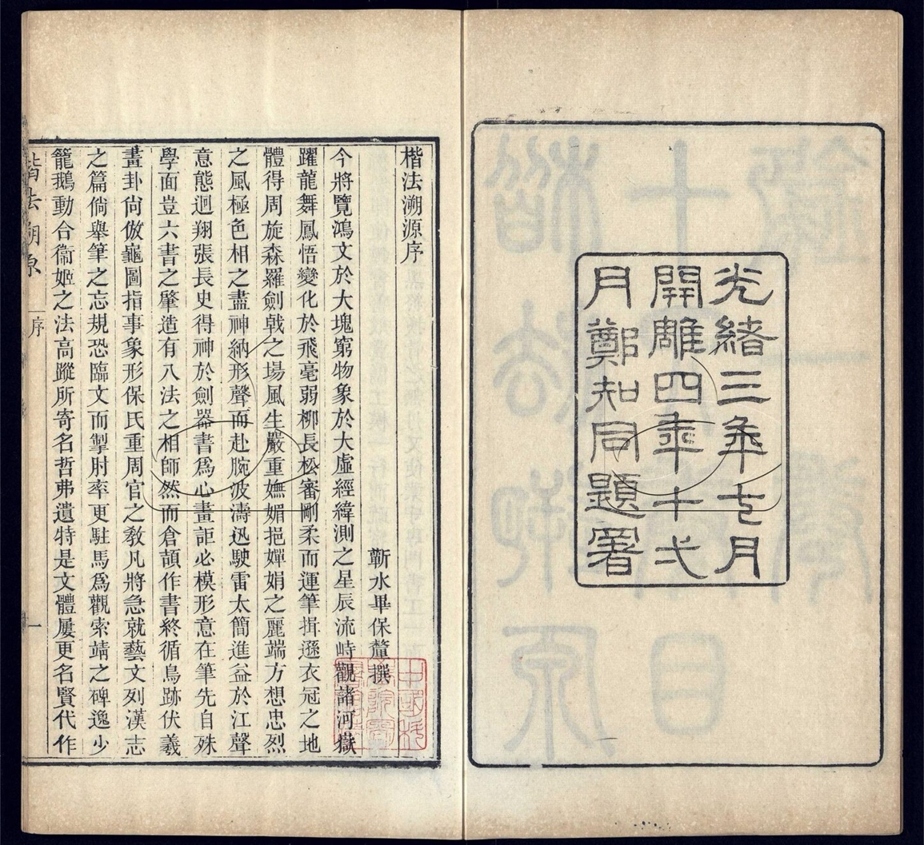 光緒三年七月
開雕四年十弍
月鄭知同題署
楷法溯源序
蘄水畢保釐撰
今將覽鴻文於大塊窮物象於大虛經緯測之星辰流峙觀諸河嶽
躍龍舞鳳悟變化於飛毫弱柳長松審剛柔而運筆揖遜衣冠之地
體得周旋森羅劍戟之場風生嚴重嫵媚挹嬋娟之麗端方想忠烈
之風極色相之盡神納形聲而赴腕波濤迅駛雷太簡進益於江聲
意態迴翔張長史得神於劍器書爲心畫詎必模形意在筆先自殊
學面豈六書之肇造有八法之相師然而倉頡作書終循鳥跡伏羲
畫卦尙倣龜圖指事象形保氏重周官之敎凡將急就藝文列漢志
之篇倘舉筆之忘規恐臨文而掣肘率更駐馬爲觀索靖之碑逸少
籠鵝動合衞姬之法高蹤所寄名哲弗遺特是文體屢更名賢代作
楷法溯原
序
一